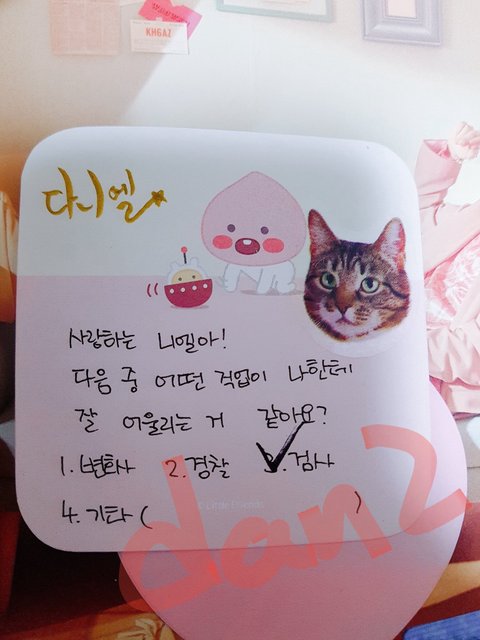 KHGAZ
다니엘
사랑하는 니엘아!
다음 중 어떤 직업이 나한테
잘 어울리는 거 같아요?
1. 변호사 2. 경찰 3. 검사
© Little Friends
4. 기타 ( )
dan2